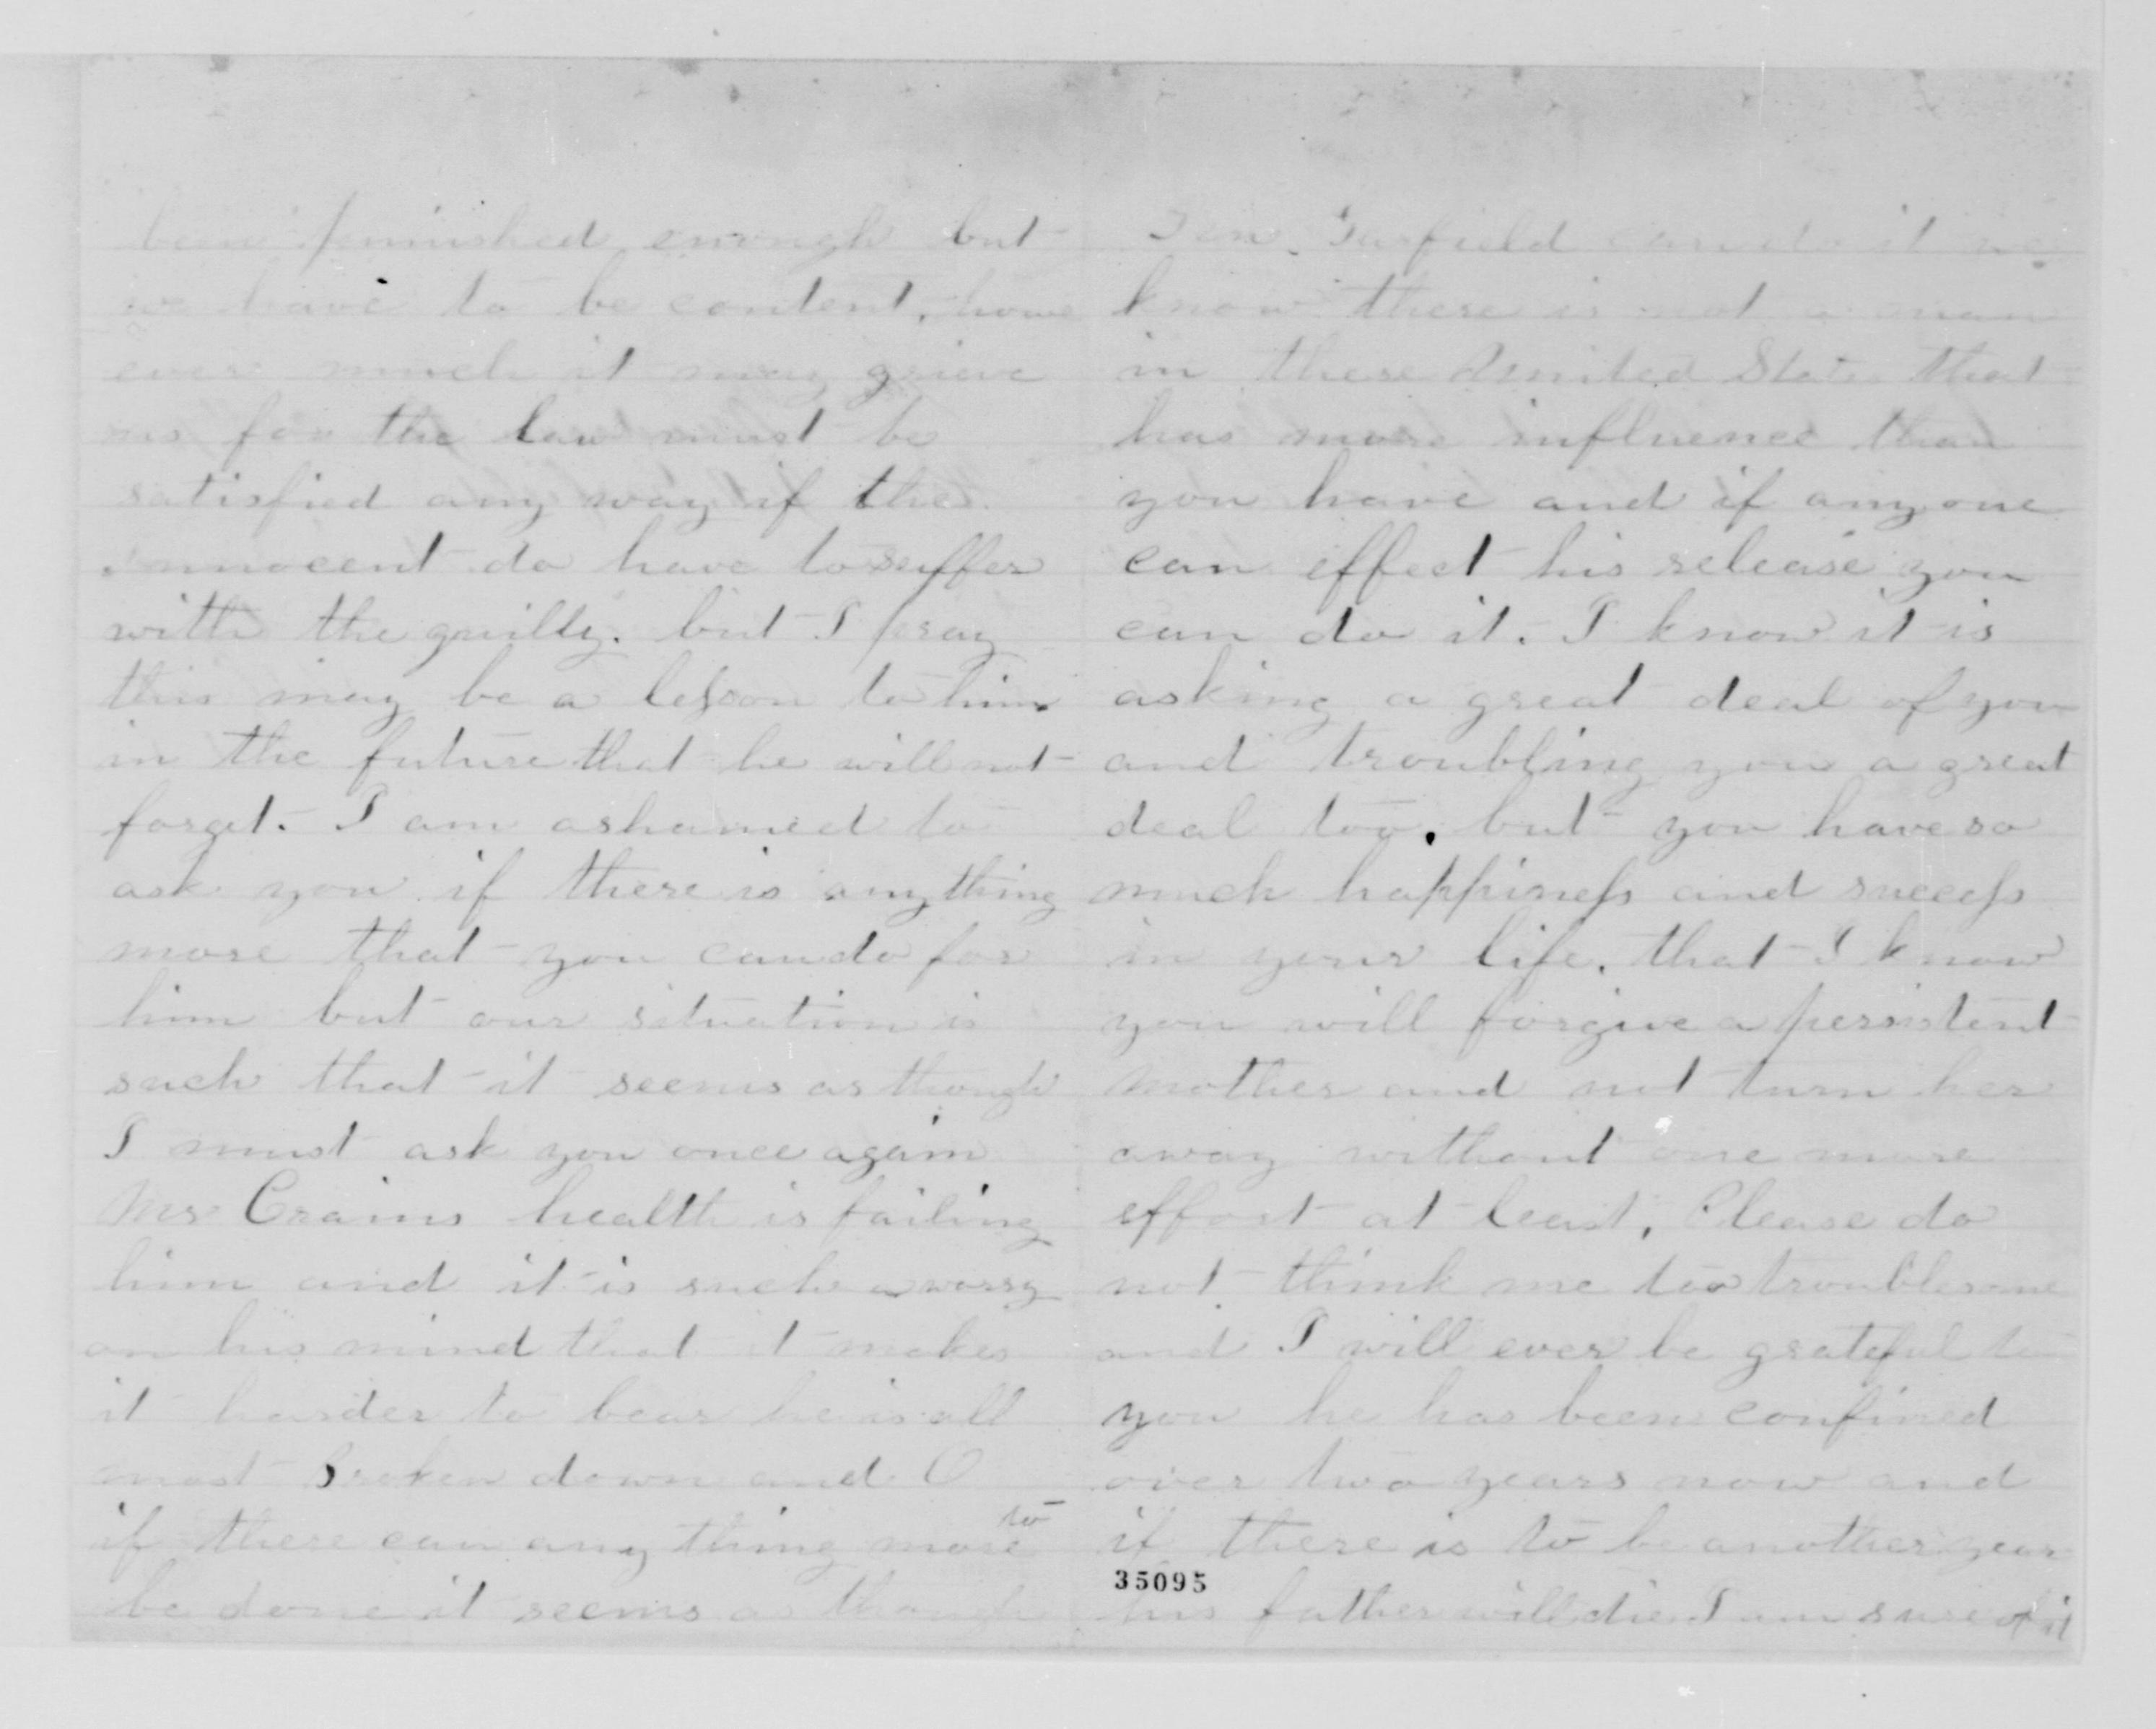 been punished enough but
we have to be content, howe
ever much it may grieve
us for the law must be
satisfied any way if the
innocent do have to suffer
with the guilty. but I pray
this may be a lesson to him
in the future that he will not
forget. I am ashamed to
ask you if there is anything
more that you can do for
him but our situation is
such that it seems as though
I must ask you once again
Mr Crains health is failing
him and it is such a worry
on his mind that it makes
it harder to bear he is all
most Broken down and O
if there can any thing more to
be done it seems as though
Gen. Garfield can do it we
know there is not a man
in these United States that
has more influence than
you have and if any one
can effect his release you
can do it. I know it is
asking a great deal of you
and troubling you a great
deal too. but you have so
much happiness and success
in your life. that I know
you will forgive a persistent
Mother and not turn her
away without one more
effort at least, Please do
not think me too troublesome
and I will ever be grateful to
you he has been confined
over two years now and
if there is to be another year
35095
his father will die I am sure of it